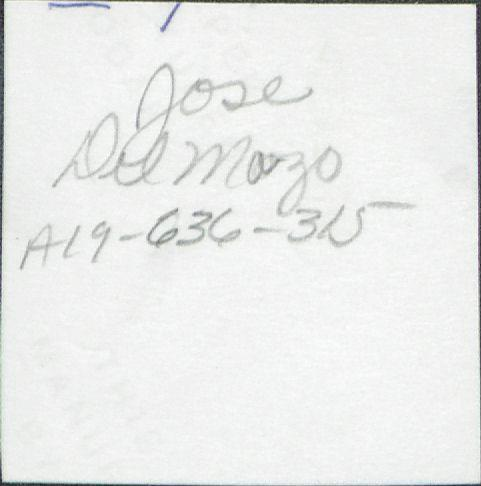 Jose
Del Mazo
A19-636-315